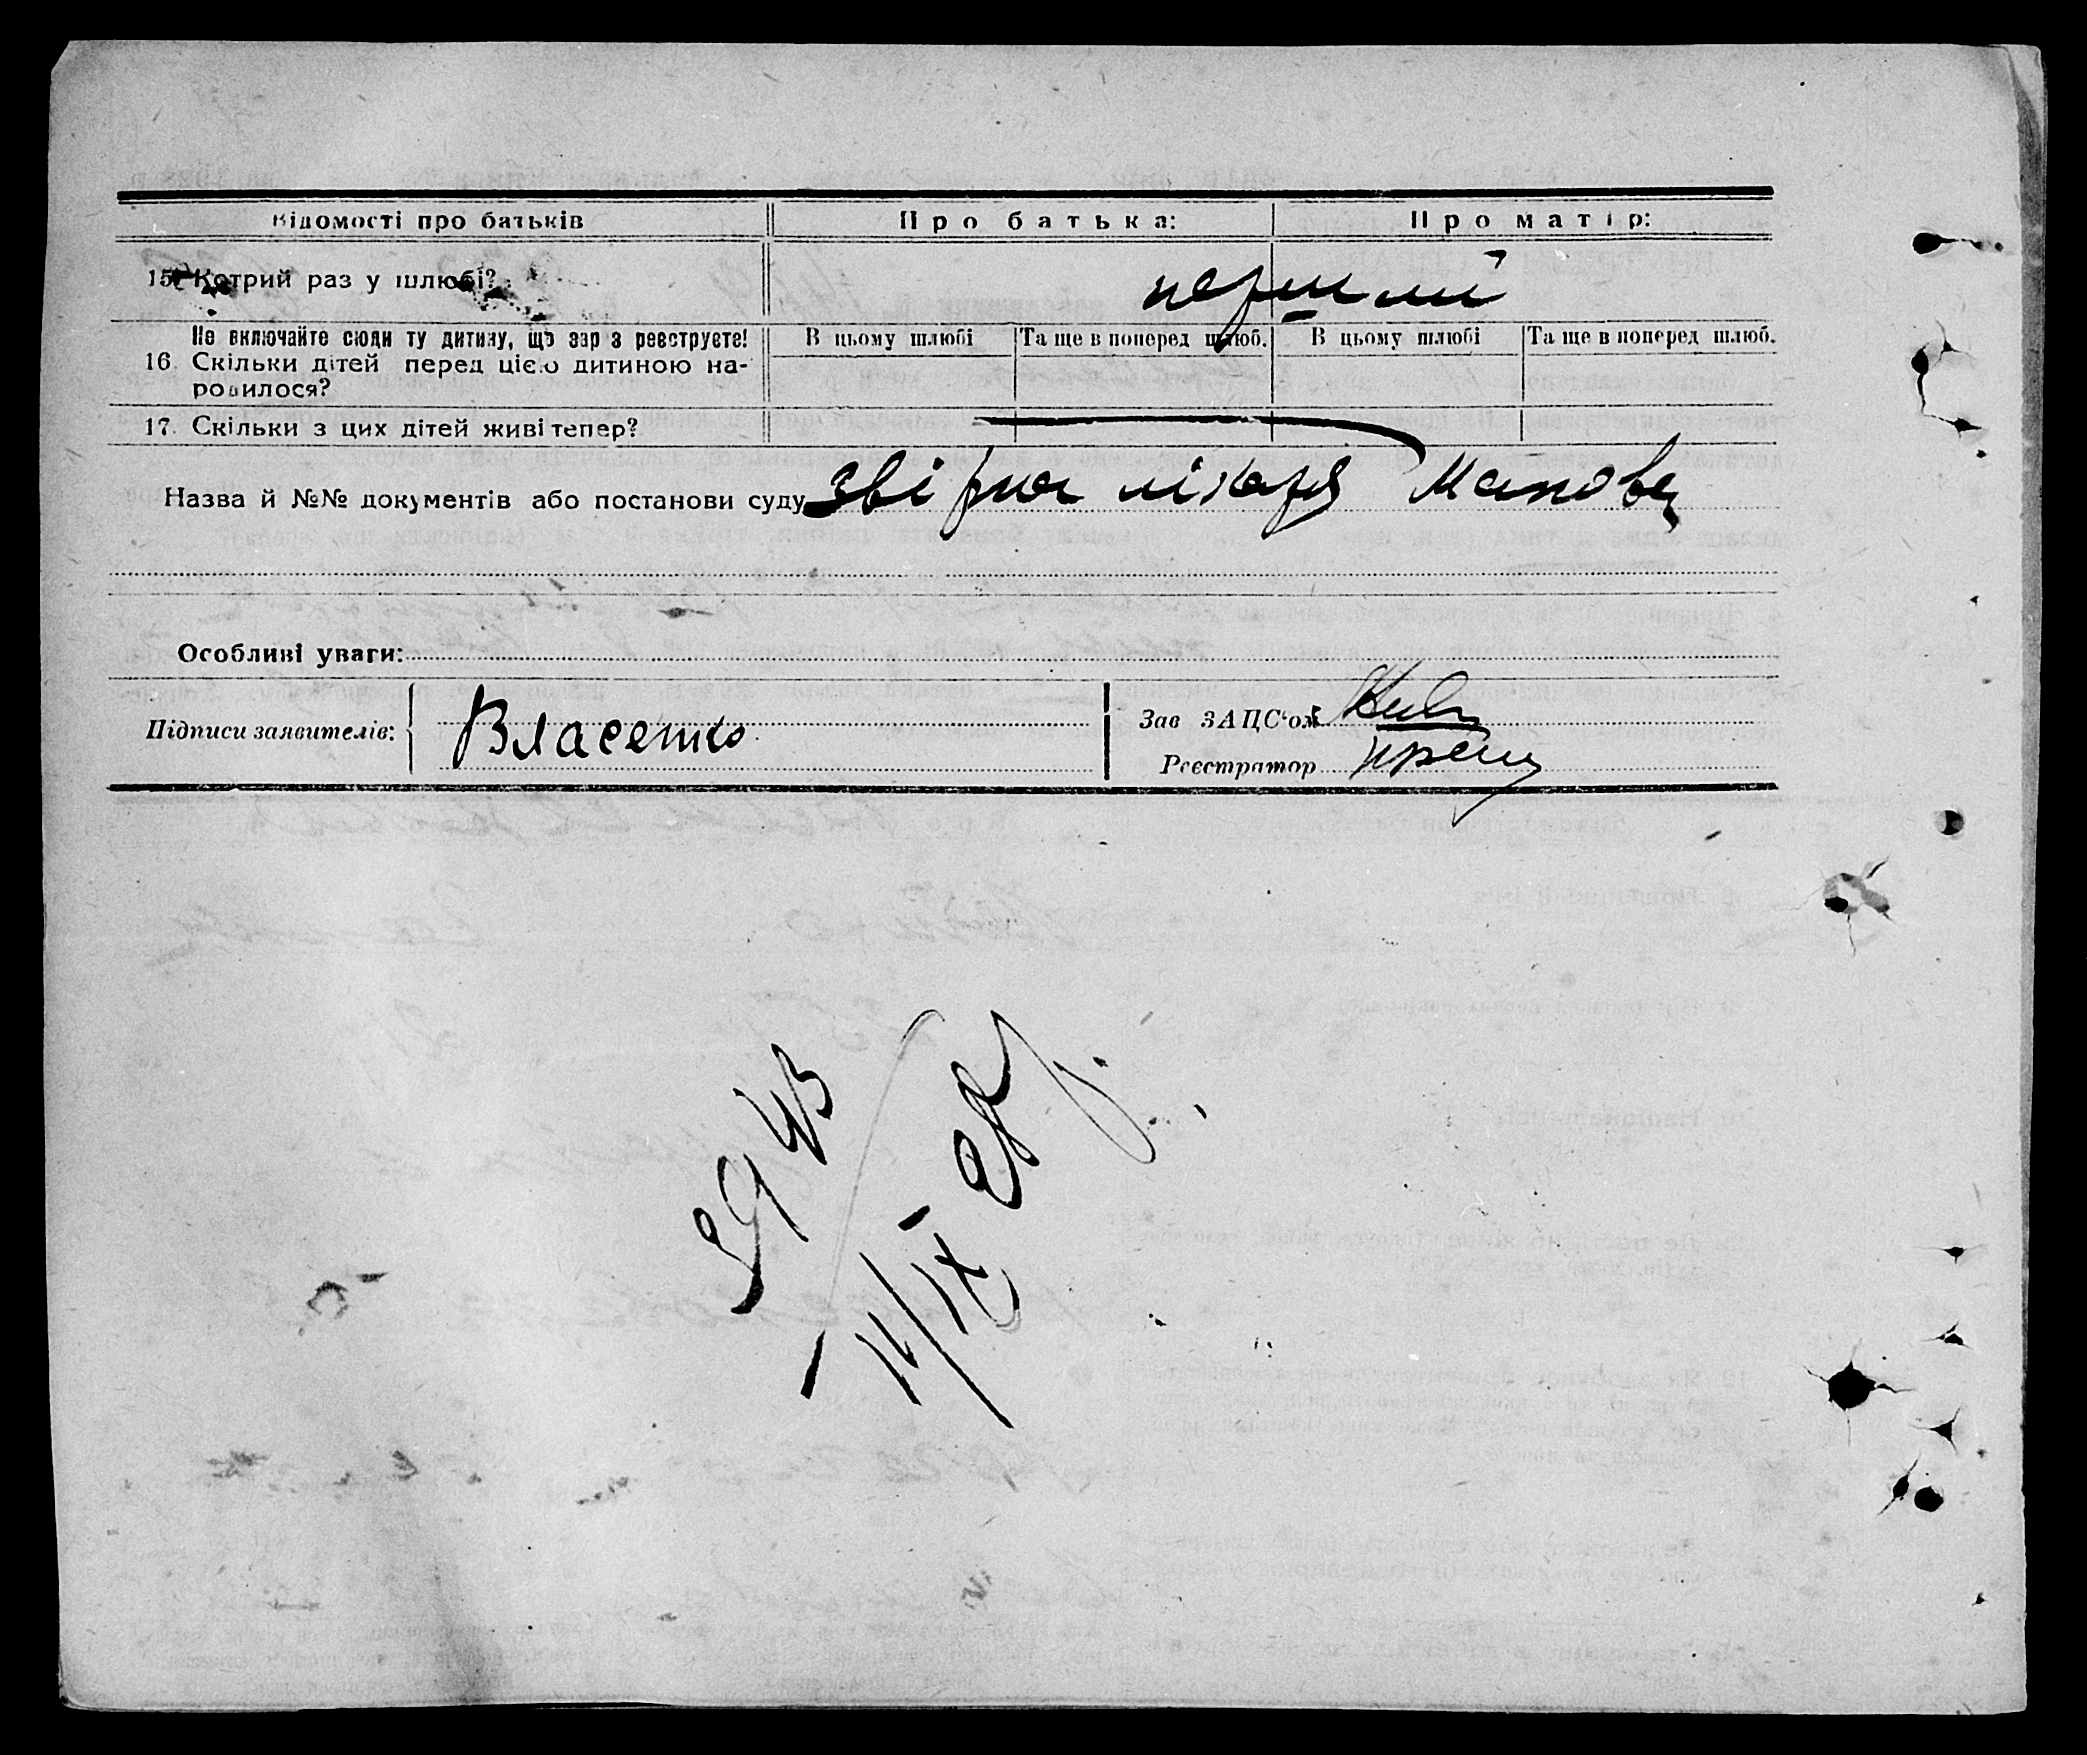 Відомості про батьків Про батька: Про матір:
15. Котрий раз у шлюбі? перший
Не включайте сюди ту дитину, що зараз реєструєте! В цьому шлюбі Та ще в поперед шлюб. В цьому шлюбі Та ще в поперед шлюб.
16. Скільки дітей перед цією дитиною на-
родилося?
17. Скільки з цих дітей живі тепер?
Назва й №№ документів або постанови суду лікаря
Особливі уваги:
Підписи заявителів: Власенко
Зав ЗАЦС'ом
Реєстратор